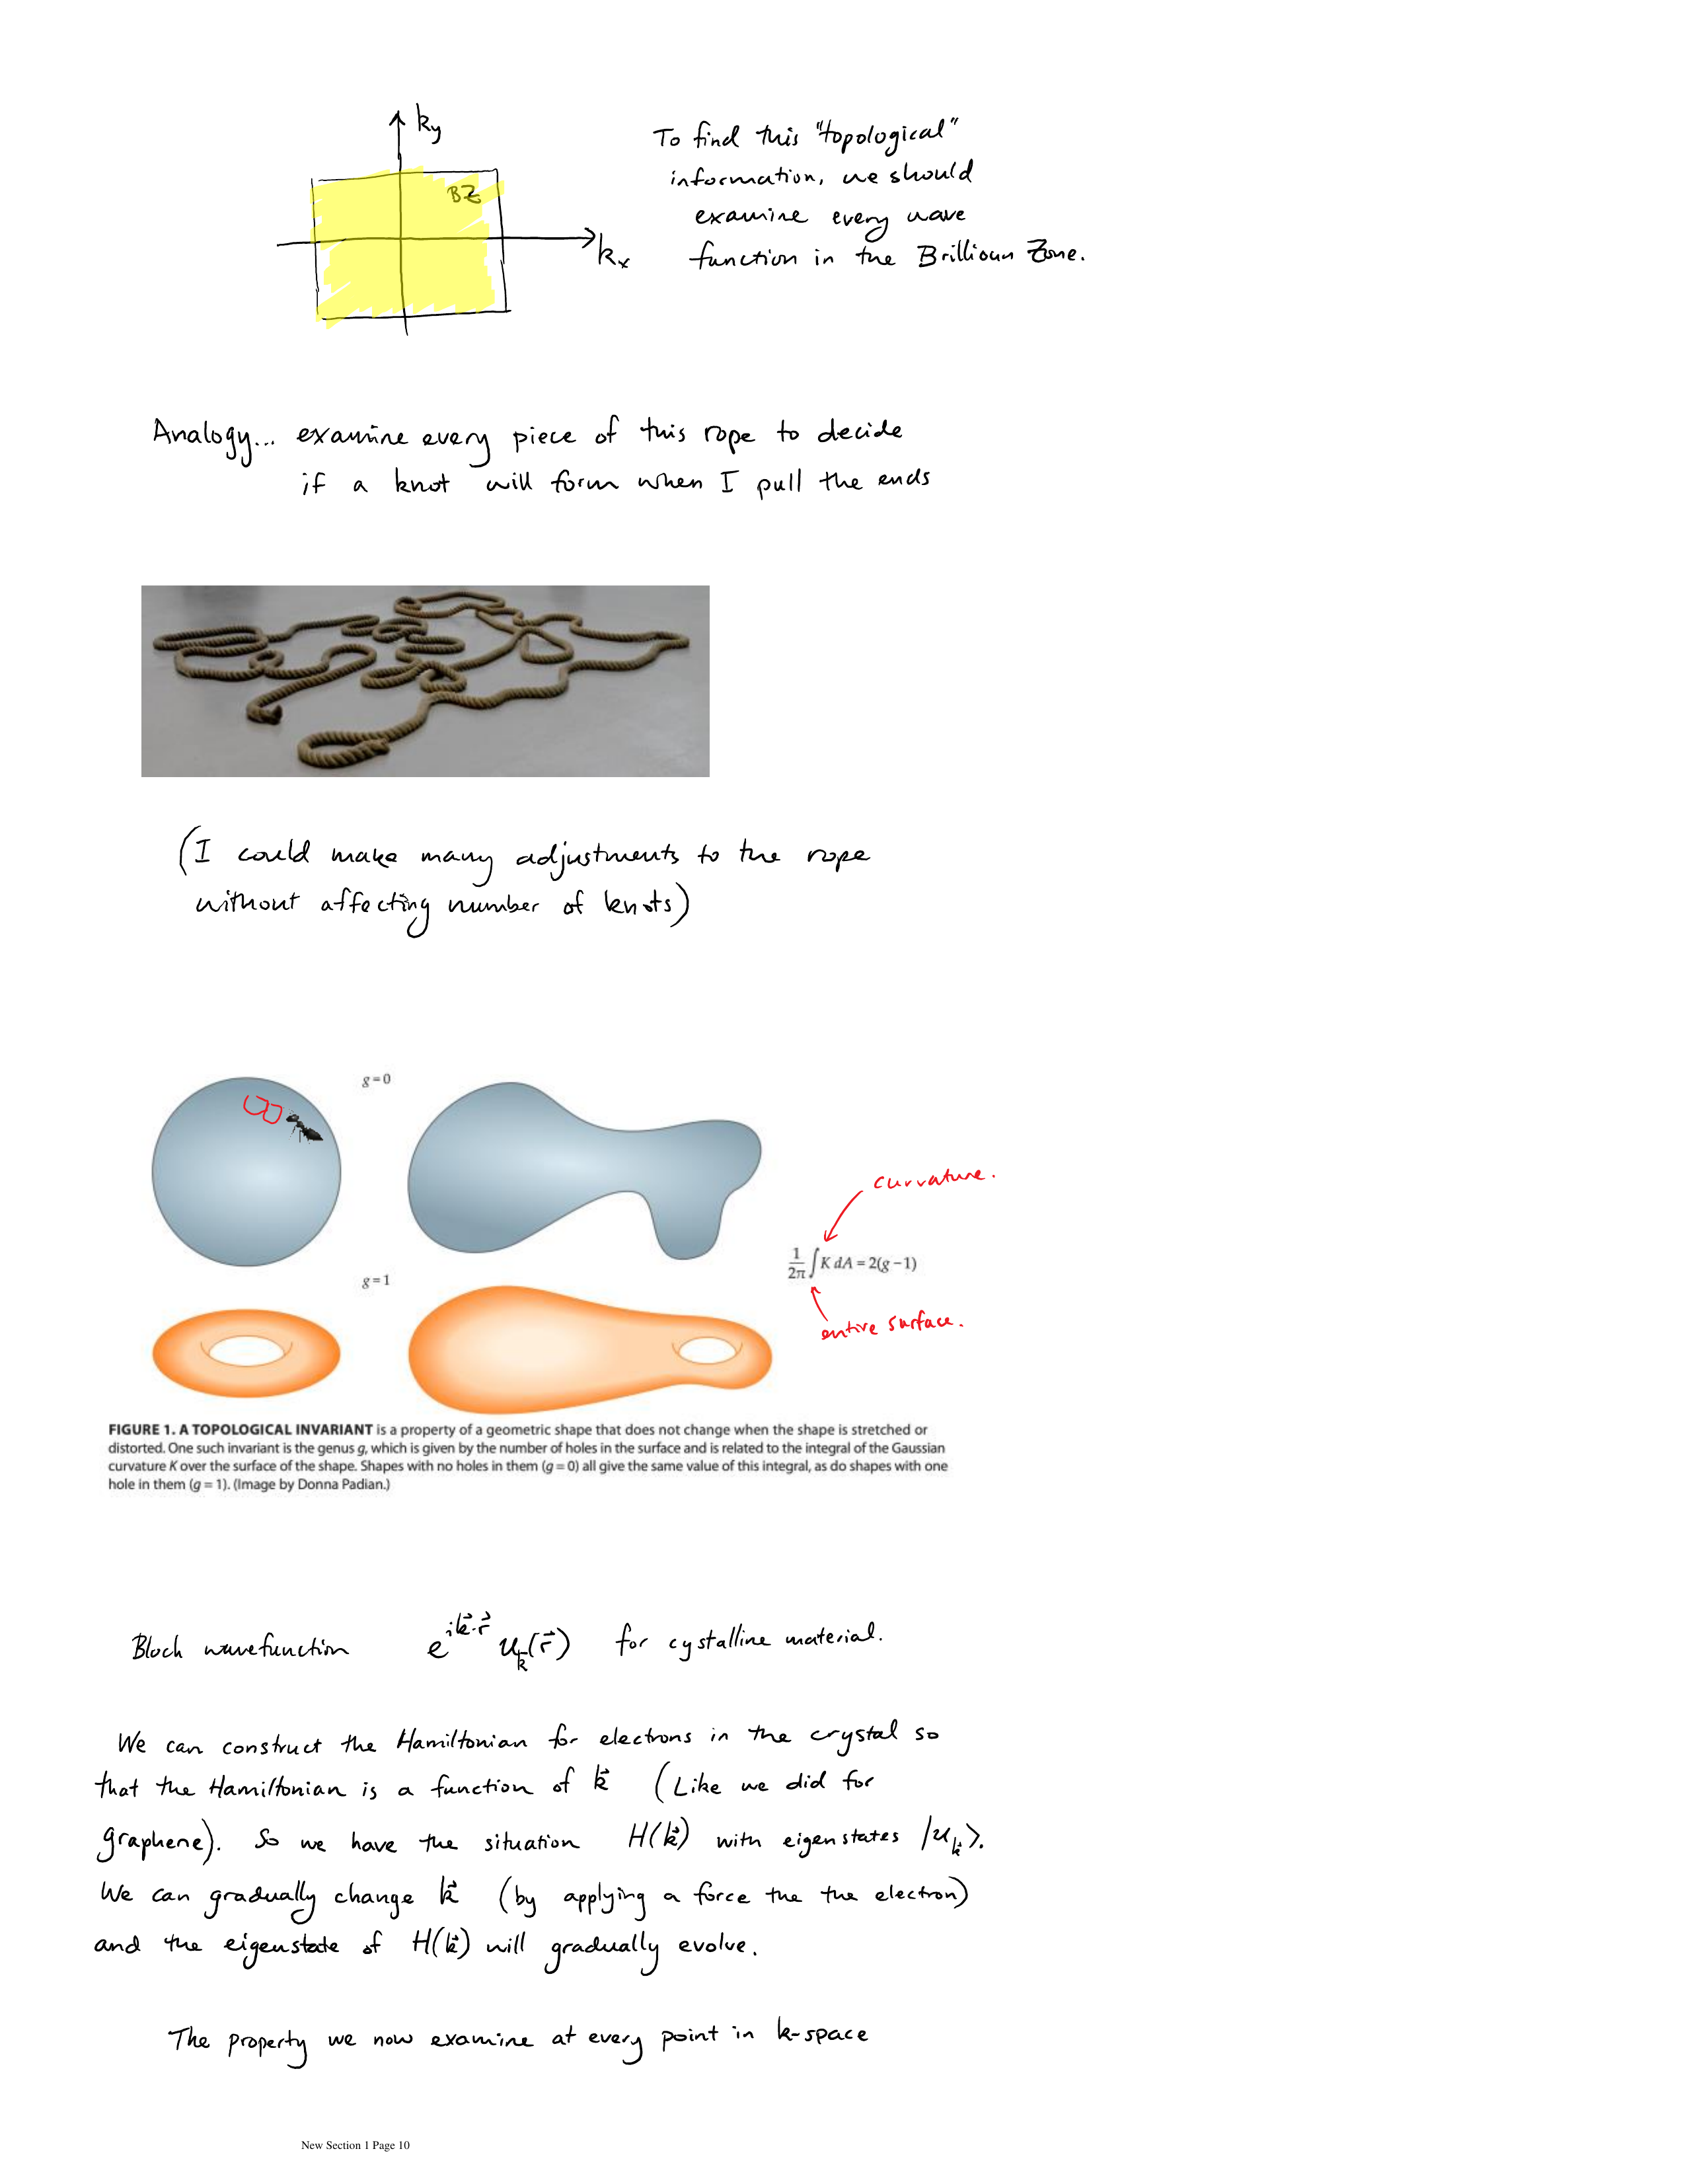 ky
BZ
kx
To find this "topological"
information, we should
examine every wave
function in the Brillioun Zone.
Analogy... examine every piece of this rope to decide
if a knot will form when I pull the ends
(I could make many adjustments to the rope
without affecting number of knots)
g=0
curvature.
1/2π ∫ K dA = 2(g−1)
g=1
entire surface.
FIGURE 1. A TOPOLOGICAL INVARIANT is a property of a geometric shape that does not change when the shape is stretched or
distorted. One such invariant is the genus g, which is given by the number of holes in the surface and is related to the integral of the Gaussian
curvature K over the surface of the shape. Shapes with no holes in them (g = 0) all give the same value of this integral, as do shapes with one
hole in them (g = 1). (Image by Donna Padian.)
Bloch wavefunction e^{i\vec{k}·\vec{r}} u_{\vec{k}}(\vec{r}) for cystalline material.
We can construct the Hamiltonian for electrons in the crystal so
that the Hamiltonian is a function of \vec{k} (Like we did for
graphene). So we have the situation H(\vec{k}) with eigenstates |u_{\vec{k}}⟩.
We can gradually change \vec{k} (by applying a force the the electron)
and the eigenstate of H(\vec{k}) will gradually evolve.
The property we now examine at every point in k-space
New Section 1 Page 10